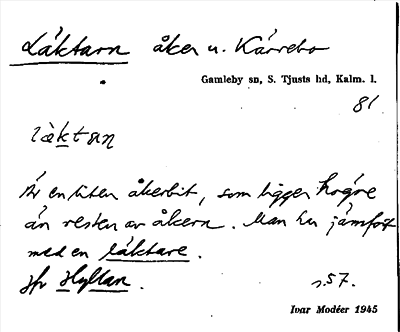 Läktarn åker u. Kärrebo
Gamleby sn, S. Tjusts hd, Kalm. l.
81
läktan
Är en liten åkerbit, som ligger högre
än resten av åkern. Man har jämfört
med en läktare.
Jfr Hyltan. s. 57.
Ivar Modéer 1945